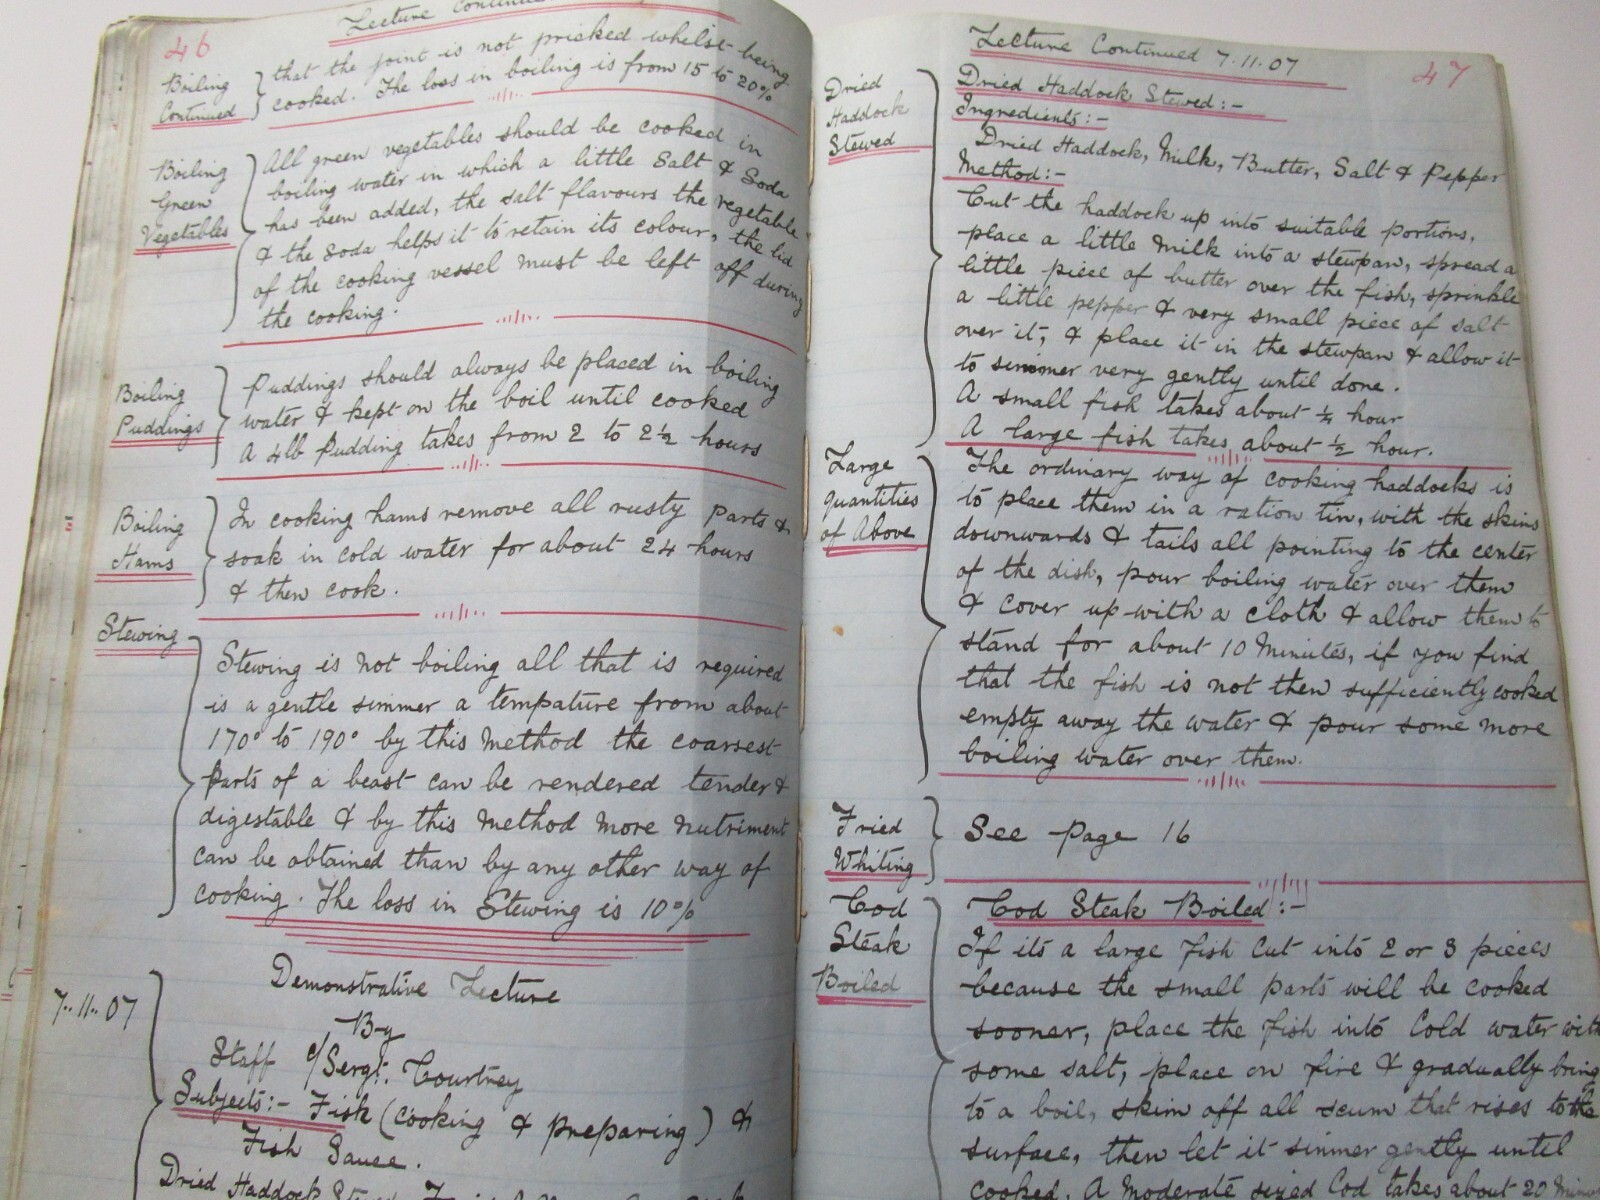 46
Lecture Continued
Boiling
Continued
that the joint is not pricked whilst being
cooked. The loss in boiling is from 15 to 20%
Boiling
Green
Vegetables
All green vegetables should be cooked in
boiling water in which a little Salt & Soda
has been added, the salt flavours the vegetable
& the Soda helps it to retain its colour, the lid
of the cooking vessel must be left off during
the cooking.
Boiling
Puddings
Puddings should always be placed in boiling
water & kept on the boil until cooked
A 4lb Pudding takes from 2 to 2½ hours
Boiling
Hams
In cooking hams remove all rusty parts &
soak in cold water for about 24 hours
& then cook.
Stewing
Stewing is not boiling all that is required
is a gentle simmer a tempature from about
170° to 190° by this Method the coarsest
parts of a beast can be rendered tender &
digestable & by this Method More nutriment
can be obtained than by any other way of
cooking. The loss in Stewing is 10%
7..11..07
Demonstrative Lecture
By
Staff c/Sergt. Courtney
Subjects:- Fish (cooking & preparing) &
Fish Sauce.
Dried Haddock
Lecture Continued 7.11.07
47
Dried
Haddock
Stewed
Dried Haddock Stewed:-
Ingredients:-
Dried Haddock, Milk, Butter, Salt & Pepper
Method:-
Cut the haddock up into suitable portions,
place a little Milk into a stewpan, spread a
little piece of butter over the fish, sprinkle
a little pepper & very small piece of salt
over it, & place it in the stewpan & allow it
to simmer very gently until done.
A small fish takes about ¼ hour
A large fish takes about ½ hour.
Large
quantities
of Above
The ordinary way of cooking haddocks is
to place them in a ration tin, with the skins
downwards & tails all pointing to the center
of the dish, pour boiling water over them
& cover up with a cloth & allow them to
stand for about 10 Minutes, if you find
that the fish is not then sufficiently cooked
empty away the water & pour some more
boiling water over them.
Fried
Whiting
See Page 16
Cod
Steak
Boiled
Cod Steak Boiled:-
If its a large fish cut into 2 or 3 pieces
because the small parts will be cooked
sooner, place the fish into Cold water with
some salt, place on fire & gradually bring
to a boil, skim off all scum that rises to the
surface, then let it simmer gently until
cooked. A Moderate sized Cod takes about 20